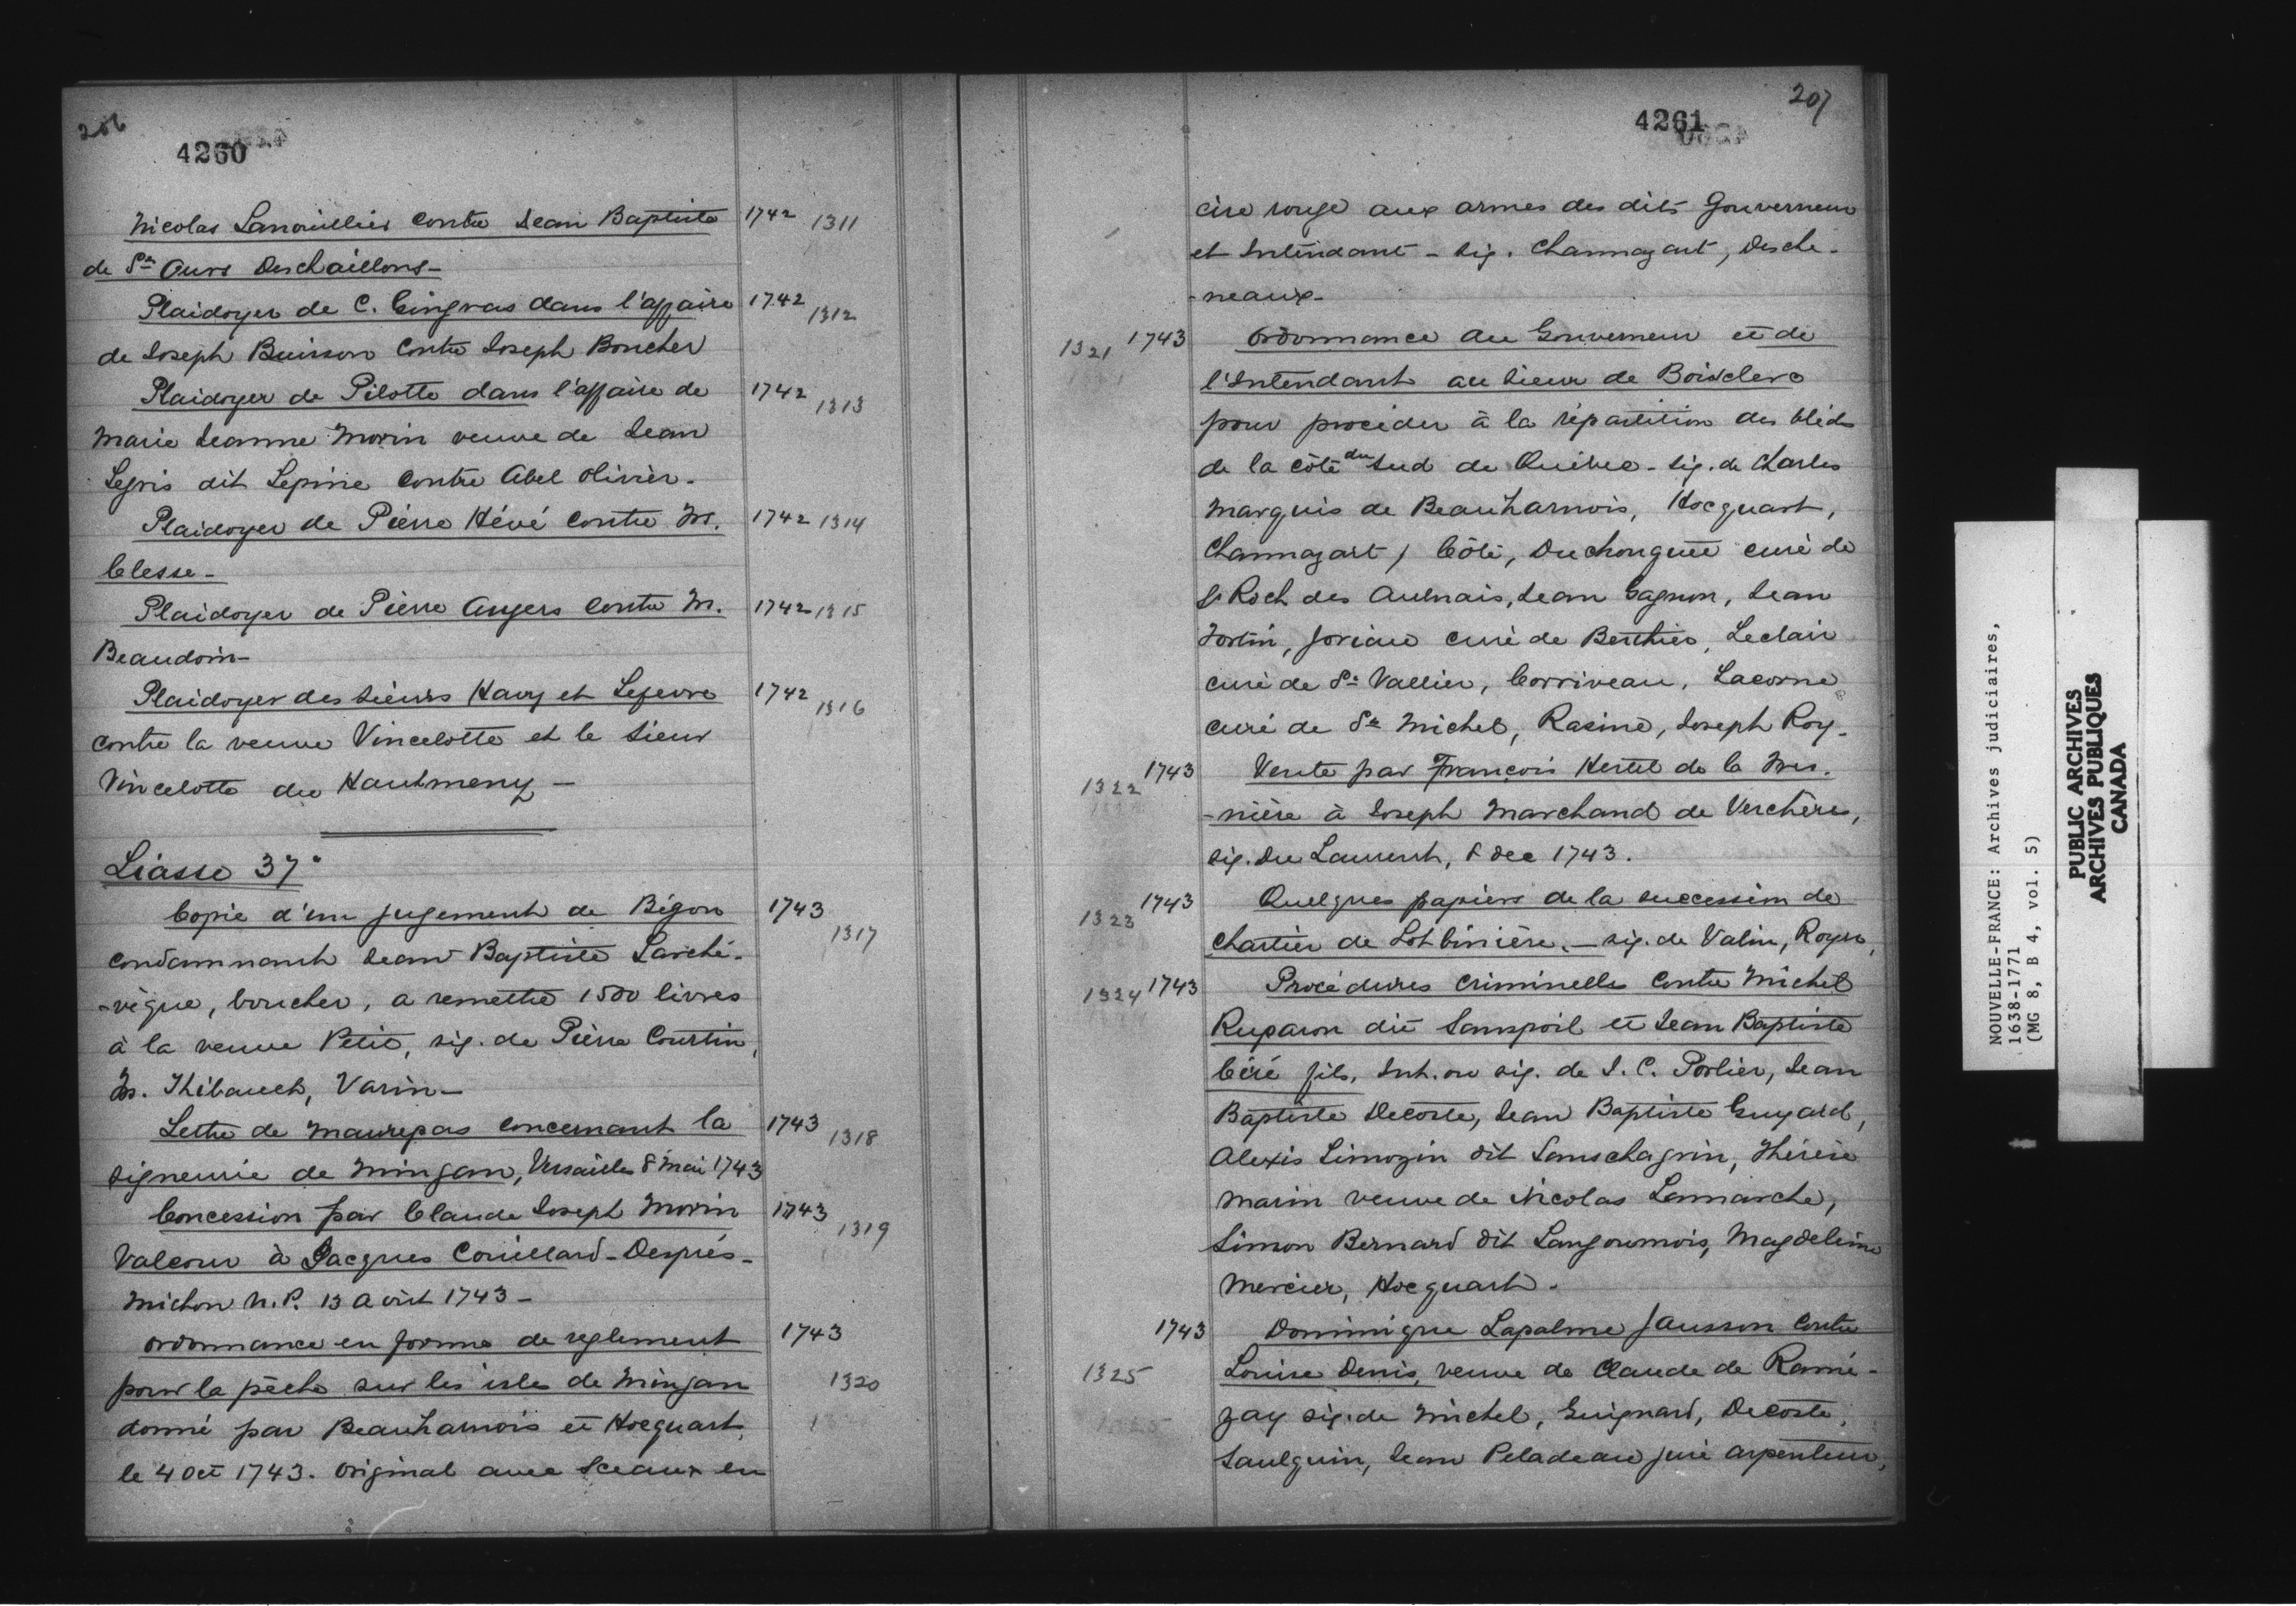 206
4260
Nicolas Lanouillier contre Jean Baptiste 1742 1311
de St Ours Deschaillons-
Plaidoyer de C. Gingras dans l'affaire 1742 1312
de Joseph Buisson contre Joseph Boucher
Plaidoyer de Pilotte dans l'affaire de 1742 1313
Marie Jeanne Morin veuve de Jean
Legris dit Lepine contre Abel Olivier.
Plaidoyer de Pierre Hévé contre M. 1742 1314
Clesse-
Plaidoyer de Pierre Angers contre M. 1742 1315
Beaudoin-
Plaidoyer des Sieurs Havy et Lefevre 1742 1316
contre la veuve Vincelotte et le Sieur
Vincelotte du Hautmeny-
Liasse 37°
Copie d'un jugement de Bégon 1743 1317
condamnant Jean Baptiste Larché-
-vèque, boucher, a remettre 1500 livres
à la veuve Petit, sig. de Pierre Courtin,
M. Thibault, Varin-
Lettre de Maurepas concernant la 1743 1318
signeurie de Mingan, Versailles 8 Mai 1743
Concession par Claude Joseph Morin 1743 1319
Valcour à Jacques Couillard-Després-
Michon N.P. 13 Août 1743-
Ordonnance en forme de reglement 1743
pour la pêche sur les isles de Mingan 1320
donné par Beauharnois et Hocquart,
le 4 Oct 1743. Original avec sceaux en
207
4261
cire rouge aux armes des dits Gouverneur
et Intendant - sig. Channazart, Desche-
-neaux-
1321 1743 Ordonnance du Gouverneur et de
l'Intendant au Sieur de Boisclerc
pour procéder à la répartition des bléds
de la côte du Sud de Québec - sig. de Charles
Marquis de Beauharnois, Hocquart,
Channazart, Côté, Duchouquet curé de
St Roch des Aulnais, Jean Gagnon, Jean
Fortin, Joriau curé de Berthier, Leclair
curé de St Vallier, Corriveau, Lacorne
curé de St Michel, Rasine, Joseph Roy-
1322 1743 Vente par François Hertel de la Fres-
-nière à Joseph Marchand de Verchères,
sig. Du Laurent, 8 dec 1743.
1323 1743 Quelques papiers de la succession de
Chartier de Lotbinière. - sig. de Valin, Royer,
1324 1743 Procédures criminelles contre Michel
Ruparon dit Sanspoil et Jean Baptiste
Céré fils, Int. ou sig. de J. C. Porlier, Jean
Baptiste Decoste, Jean Baptiste Guyard,
Alexis Limozin dit Sanschagrin, Thérèse
Marin veuve de Nicolas Lamarche,
Simon Bernard dit Langoumois, Magdeleine
Mercier, Hocquart.
1743 Dominique Lapalme Jansson contre
1325 Louise Denis, veuve de Claude de Ramé-
zay sig. de Michel, Guignard, Decoste,
Saulquin, Jean Peladeau juré arpenteur,
NOUVELLE-FRANCE: Archives judiciaires,
1638-1771
(MG 8, B 4, vol. 5)
PUBLIC ARCHIVES
ARCHIVES PUBLIQUES
CANADA